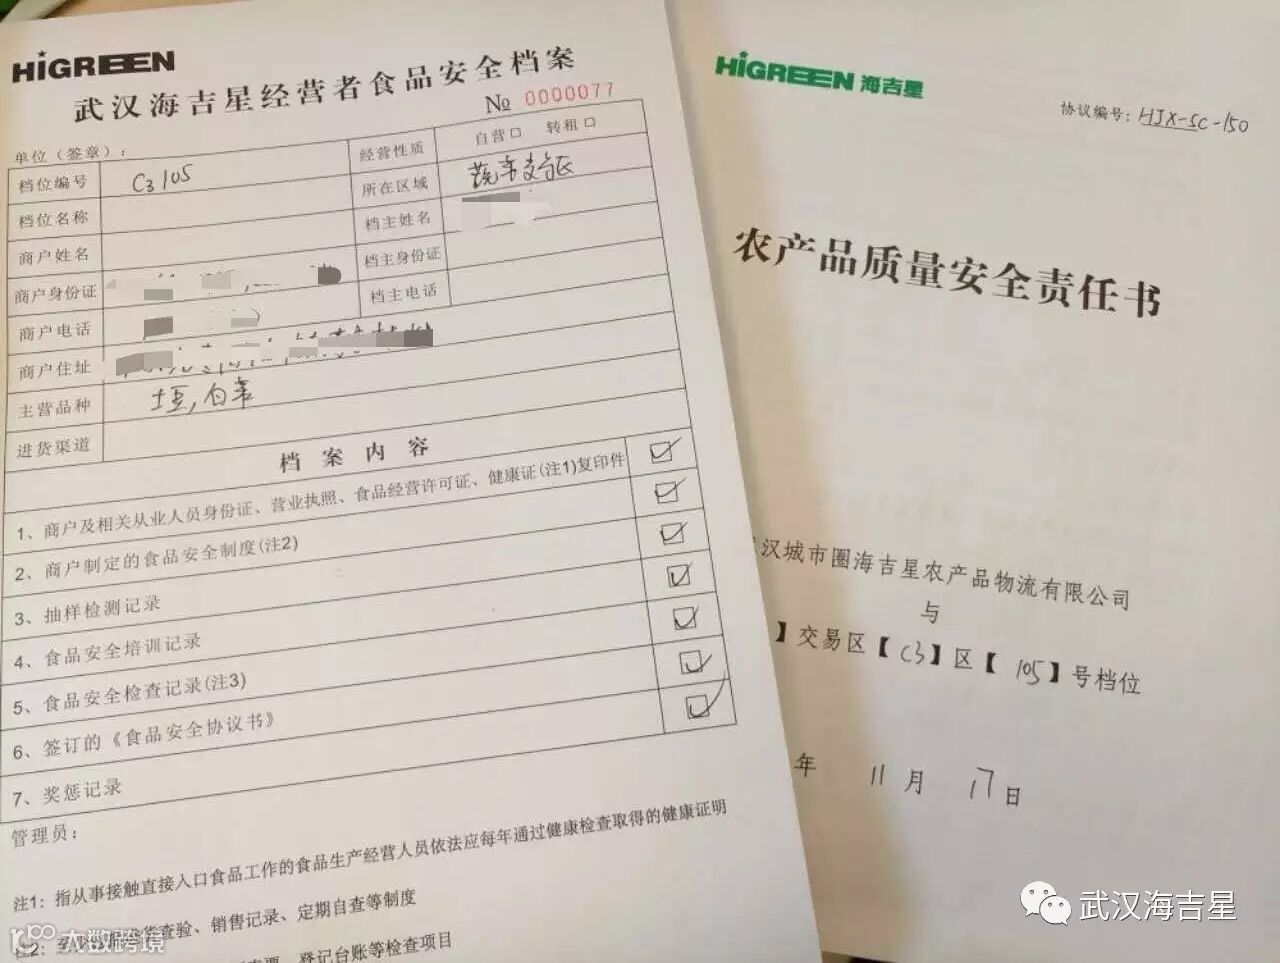 HiGREEN
武汉海吉星经营者食品安全档案
№ 0000077
单位（签章）：
档位编号 C3 105 经营性质 自营□ 转租□
档位名称 所在区域
商户姓名 档主姓名
商户身份证 档主身份证
商户电话 档主电话
商户住址
主营品种 土豆,白
进货渠道
档案内容
1、商户及相关从业人员身份证、营业执照、食品经营许可证、健康证(注1)复印件 ☑
2、商户制定的食品安全制度(注2) ☑
3、抽样检测记录 ☑
4、食品安全培训记录 ☑
5、食品安全检查记录(注3) ☑
6、签订的《食品安全协议书》 ☑
7、奖惩记录 ☑
管理员：
注1：指从事接触直接入口食品工作的食品生产经营人员依法应每年通过健康检查取得的健康证明
注2： 查验、销售记录、定期自查等制度
登记台账等检查项目
HiGREEN 海吉星
协议编号：HJX-SC-150
农产品质量安全责任书
汉城市圈海吉星农产品物流有限公司
与
】交易区【C3】区【105】号档位
年 11月 17日
武汉海吉星
大数跨境